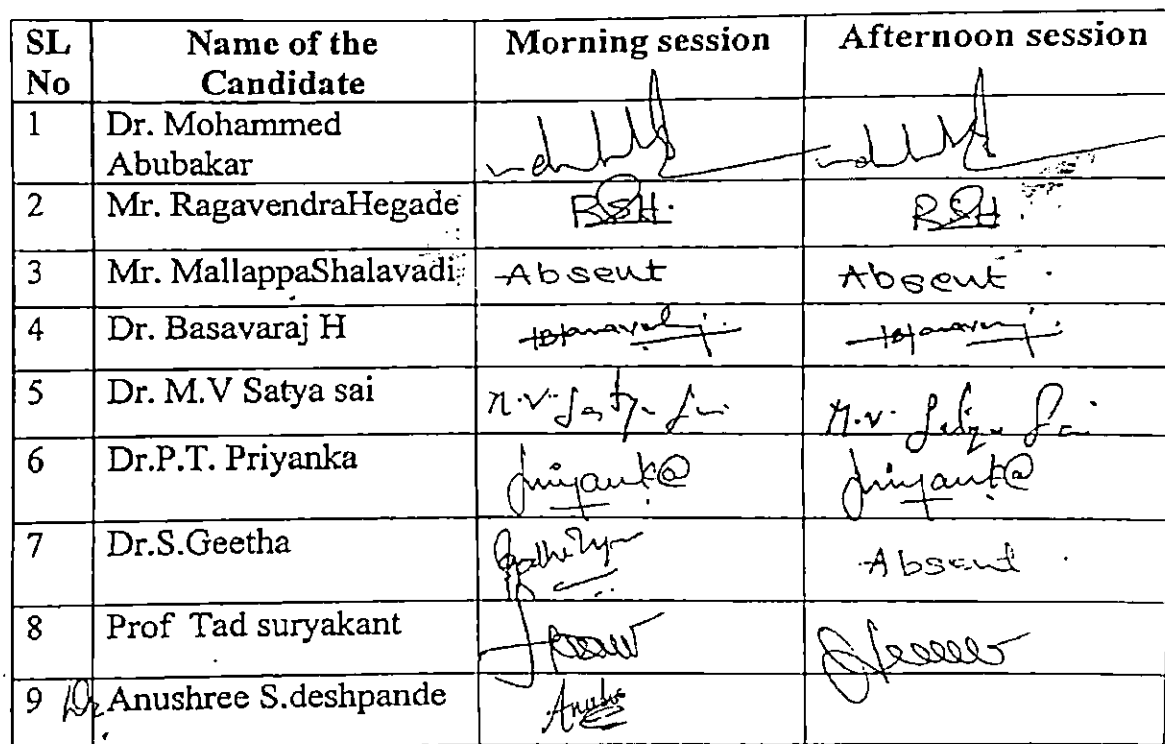 SL No Name of the Candidate Morning session Afternoon session
1 Dr. Mohammed Abubakar
2 Mr. RagavendraHegade RSH. RSH
3 Mr. MallappaShalavadi Absent Absent
4 Dr. Basavaraj H
5 Dr. M.V Satya sai M.V. Satya Sai M.V. Satya Sai
6 Dr.P.T. Priyanka Priyanka Priyanka
7 Dr.S.Geetha Absent
8 Prof Tad suryakant
9 Dr Anushree S.deshpande Anushree